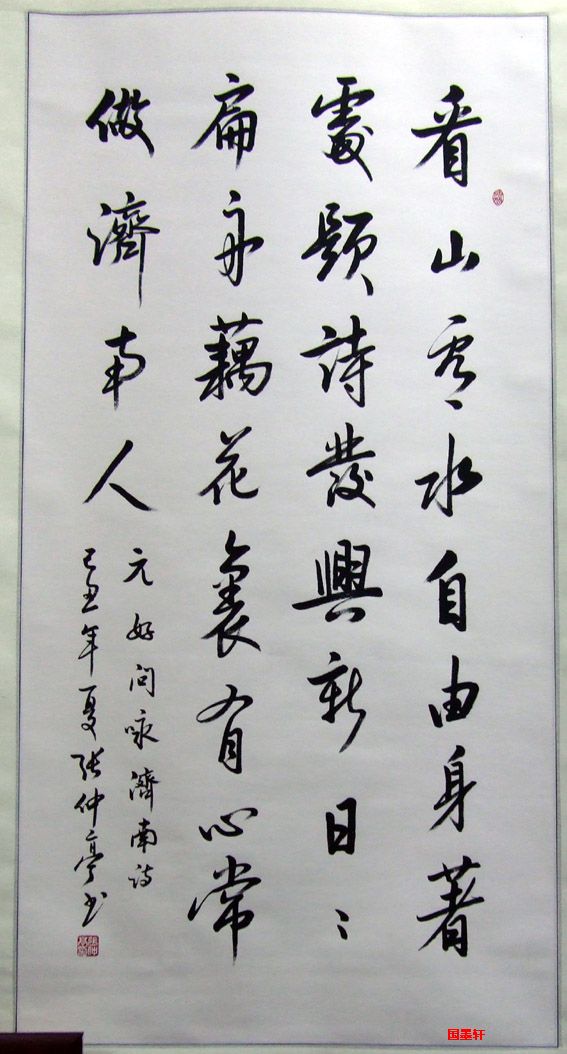 看山看水自由身著
處題詩發興新日〻
扁舟藕花裏有心常
做濟南人
元好问咏濟南诗
己丑年夏张仲亭书
国墨轩